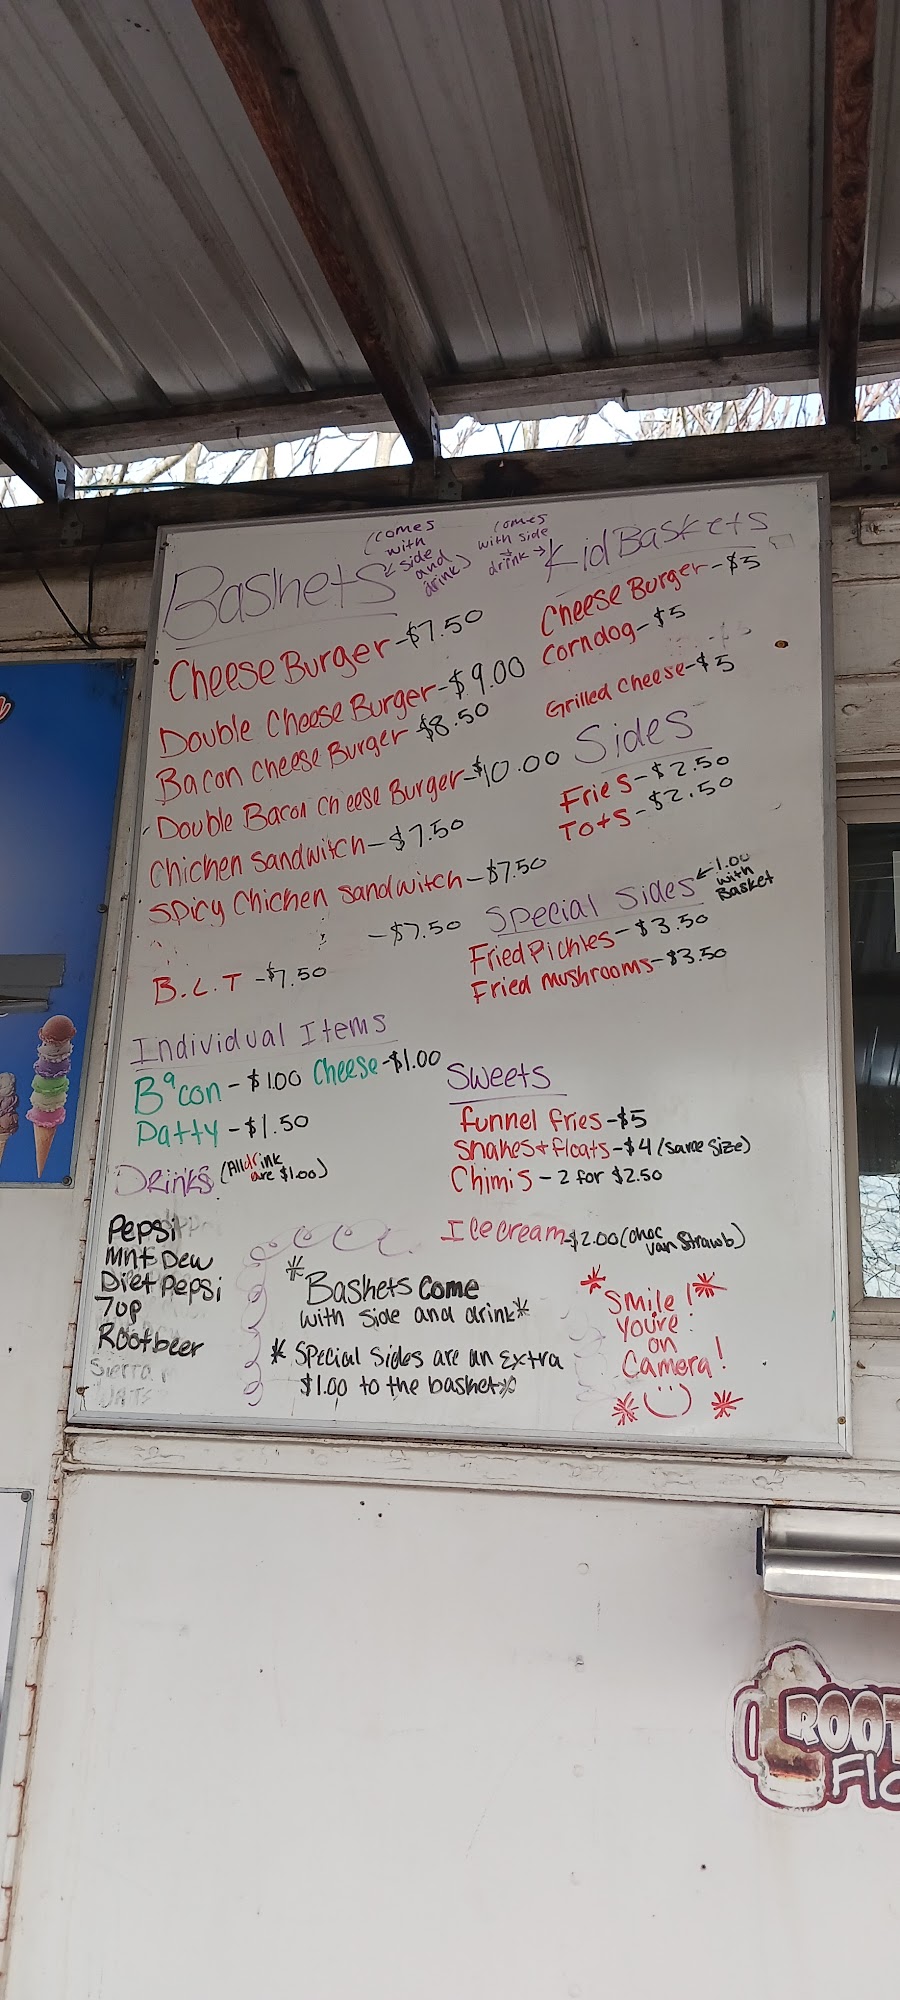 Baskets
(comes
with
side
and
drink)
comes
with side
drink
Kid Baskets
Cheese Burger-$7.50
Double Cheese Burger-$9.00
Bacon Cheese Burger $8.50
Double Bacon Cheese Burger-$10.00
Chicken Sandwitch-$7.50
Spicy Chicken Sandwitch-$7.50
-$7.50
B.L.T-$7.50
Cheese Burger-$5
Corndog-$5
Grilled Cheese-$5
Sides
Fries-$2.50
Tots-$2.50
Special Sides
1.00
with
Basket
Fried Pickles-$3.50
Fried mushrooms-$3.50
Individual Items
Bacon-$1.00 Cheese-$1.00
Patty-$1.50
Drinks (All drink
are $1.00)
Pepsi
Mnt Dew
Diet Pepsi
7up
Rootbeer
Sierra
Sweets
funnel fries-$5
Shakes+floats-$4 (same size)
Chimis-2 for $2.50
Ice cream-$2.00 (choc
van Strawb)
*Baskets come
with side and drink*
* Special Sides are an extra
$1.00 to the basket*
*Smile!*
you're
on
Camera!
ROOT
Flo